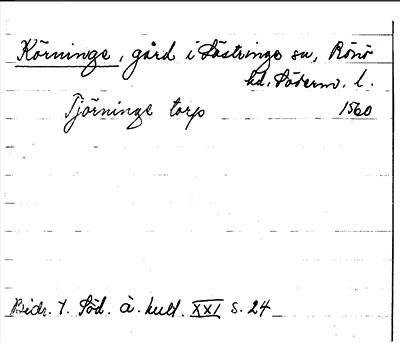 Körninge, gård i Västringe sn, Rönö
hd. Söderm. l.
Tjörninge torp 1560
Bidr. t. Söd. ä. kult. XXI s. 24